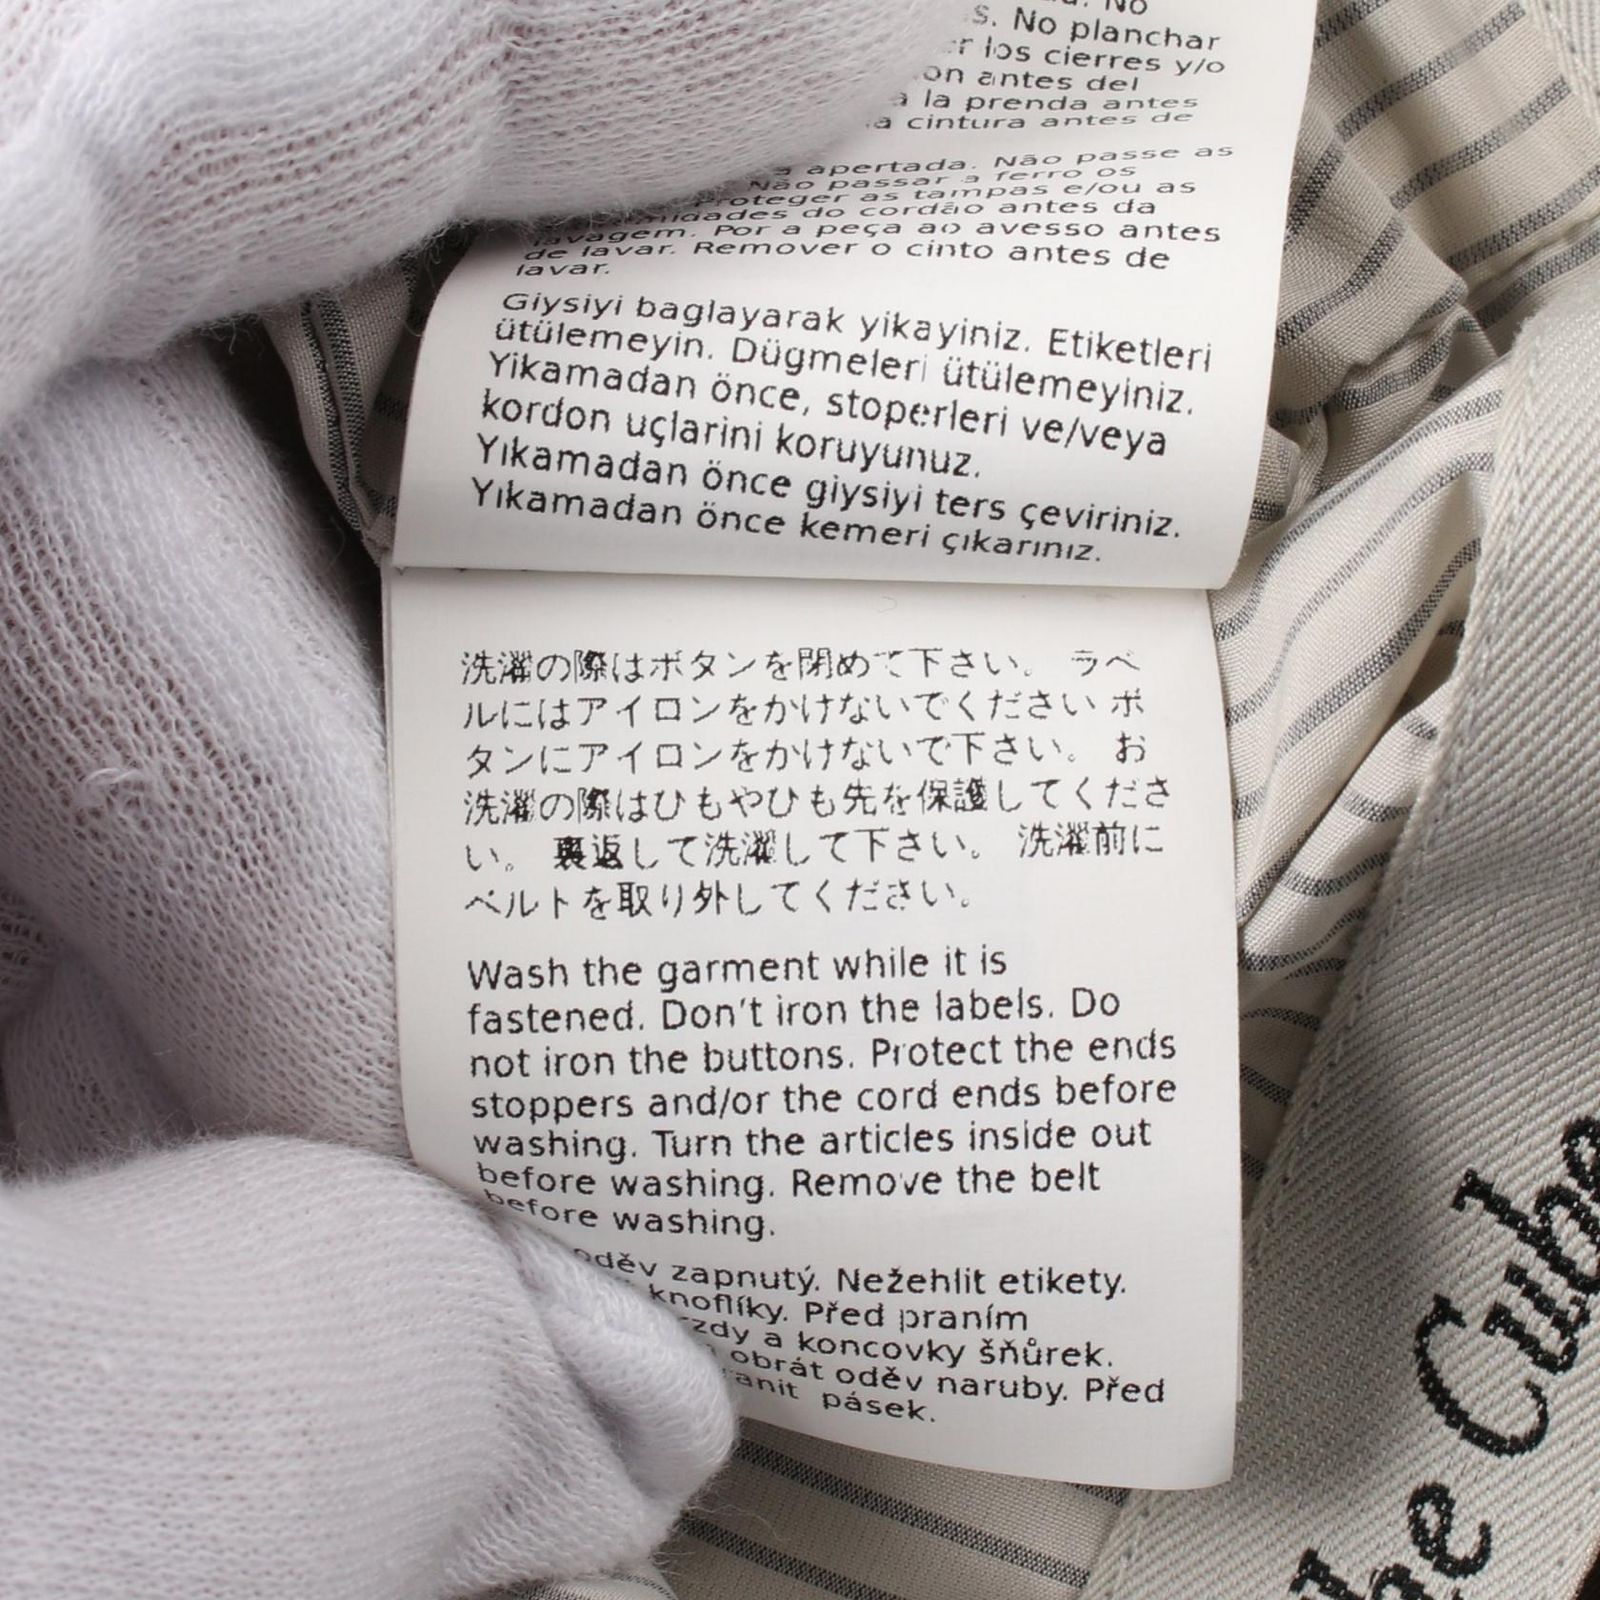 No
No planchar
los cierres y/o
antes del
la prenda antes
cintura antes de
apertada. Não passe as
Não passar a ferro os
Proteger as tampas e/ou as
do cordão antes da
lavagem. Por a peça ao avesso antes
de lavar. Remover o cinto antes de
lavar.
Giysiyi baglayarak yikayiniz. Etiketleri
ütülemeyin. Dügmeleri ütülemeyiniz.
Yikamadan önce, stoperleri ve/veya
kordon uçlarini koruyunuz.
Yıkamadan önce giysiyi ters çeviriniz.
Yıkamadan önce kemeri çıkarınız.
洗濯の際はボタンを閉めて下さい。 ラベ
ルにはアイロンをかけないでください ボ
タンにアイロンをかけないで下さい。 お
洗濯の際はひもやひも先を保護してくださ
い。 裏返して洗濯して下さい。 洗濯前に
ベルトを取り外してください。
Wash the garment while it is
fastened. Don't iron the labels. Do
not iron the buttons. Protect the ends
stoppers and/or the cord ends before
washing. Turn the articles inside out
before washing. Remove the belt
before washing.
oděv zapnutý. Nežehlit etikety.
knoflíky. Před praním
a koncovky šňůrek.
obrát oděv naruby. Před
pásek.
he Cube